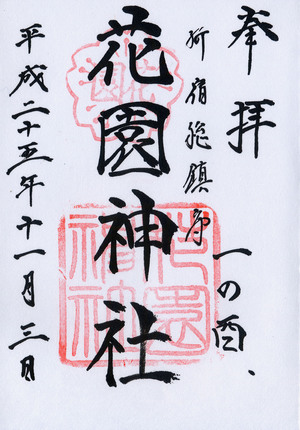 奉拝
一の酉、
新宿総鎮守
花園神社
平成二十五年十一月三日
花園神社